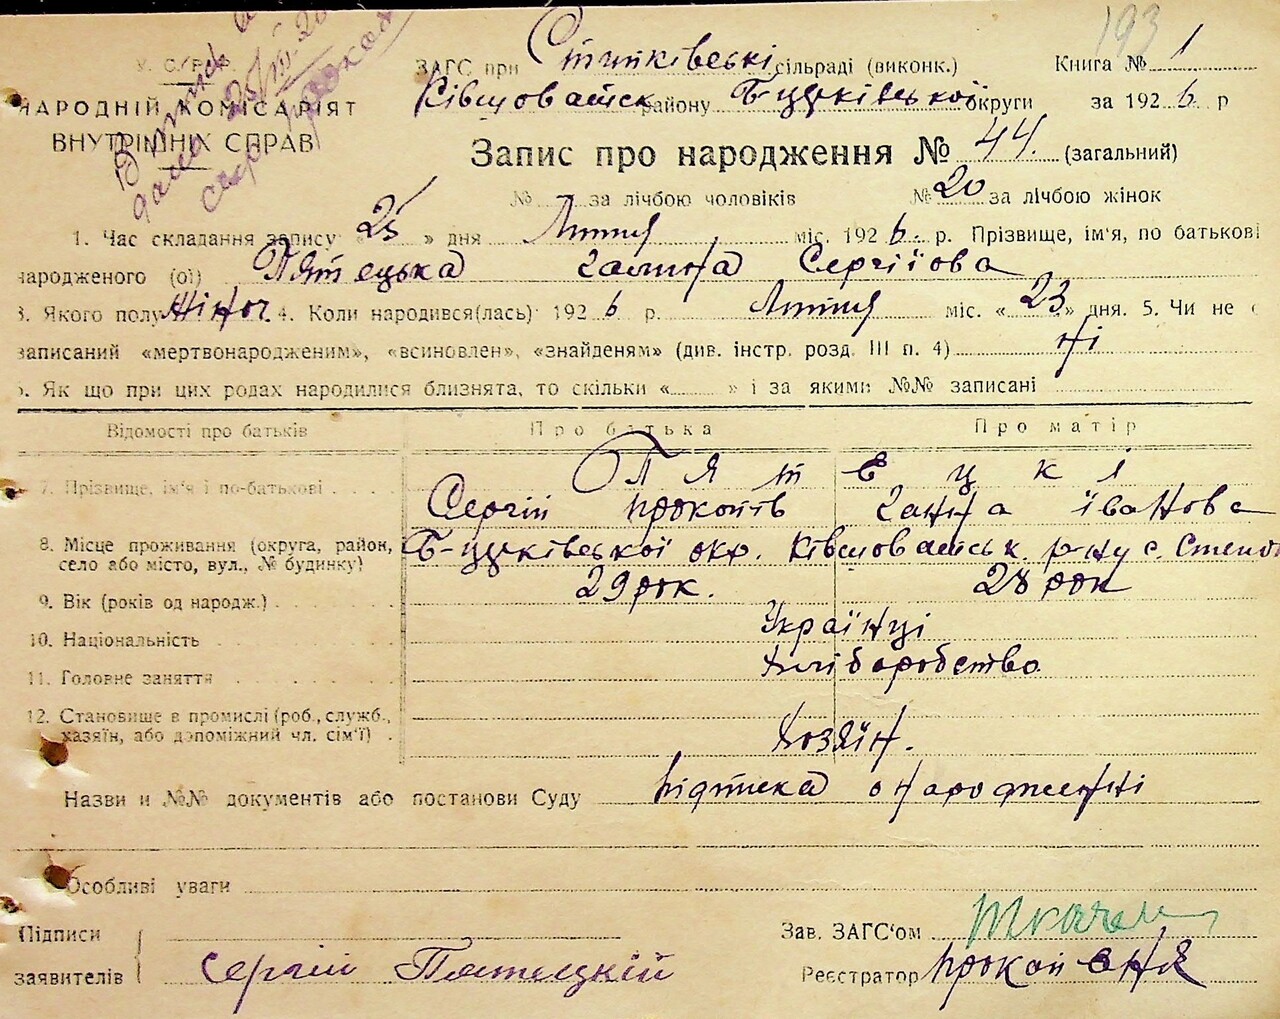 193
У. С. Р. Р.
НАРОДНІЙ КОМІСАРІЯТ
ВНУТРІШНІХ СПРАВ
ЗАГС при сільраді (виконк.) Книга № 1
району округи за 1926 р
Запис про народження № 44. (загальний)
№ за лічбою чоловіків № 20 за лічбою жінок
1. Час складання запису «25» дня Лютня міс. 1926. р. Прізвище, ім'я, по батькові
народженого (ої) Пятецька Галина Сергіїова
3. Якого полу Жіноч. 4. Коли народився(лась) 1926 р. Лютня міс. «23» дня. 5. Чи не є
записаний «мертвонародженим», «всиновлен», «знайденям» (див. інстр. розд. III п. 4) Ні
6. Як що при цих родах народилися близнята, то скільки « » і за якими №№ записані
Відомості про батьків Про батька Про матір
7. Прізвище, ім'я і по-батькові Пятецкі
Сергій Прокопів Ганна Іванова
8. Місце проживання (округа, район, Б-церківської окр. р-ну с.
село або місто, вул., № будинку)
9. Вік (років од народж.) 29 рок. 28 рок
10. Національність Українці
11. Головне заняття Хліборобство
12. Становище в промислі (роб., служб.,
хазяїн, або допоміжний чл. сім'ї) Хозяїн.
Назви и №№ документів або постанови Суду Підписка о народженні
Особливі уваги
Підписи Зав. ЗАГС'ом
заявителів Сергій Пятецкій Реєстратор